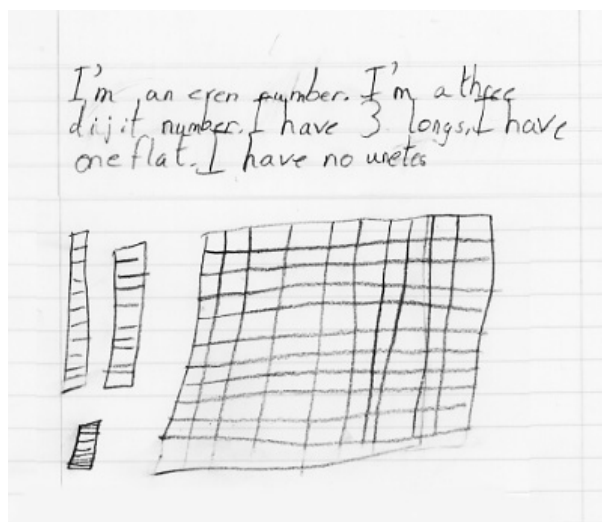 I'm an even number. I'm a three
dijit number. I have 3 longs. I have
one flat. I have no unetes